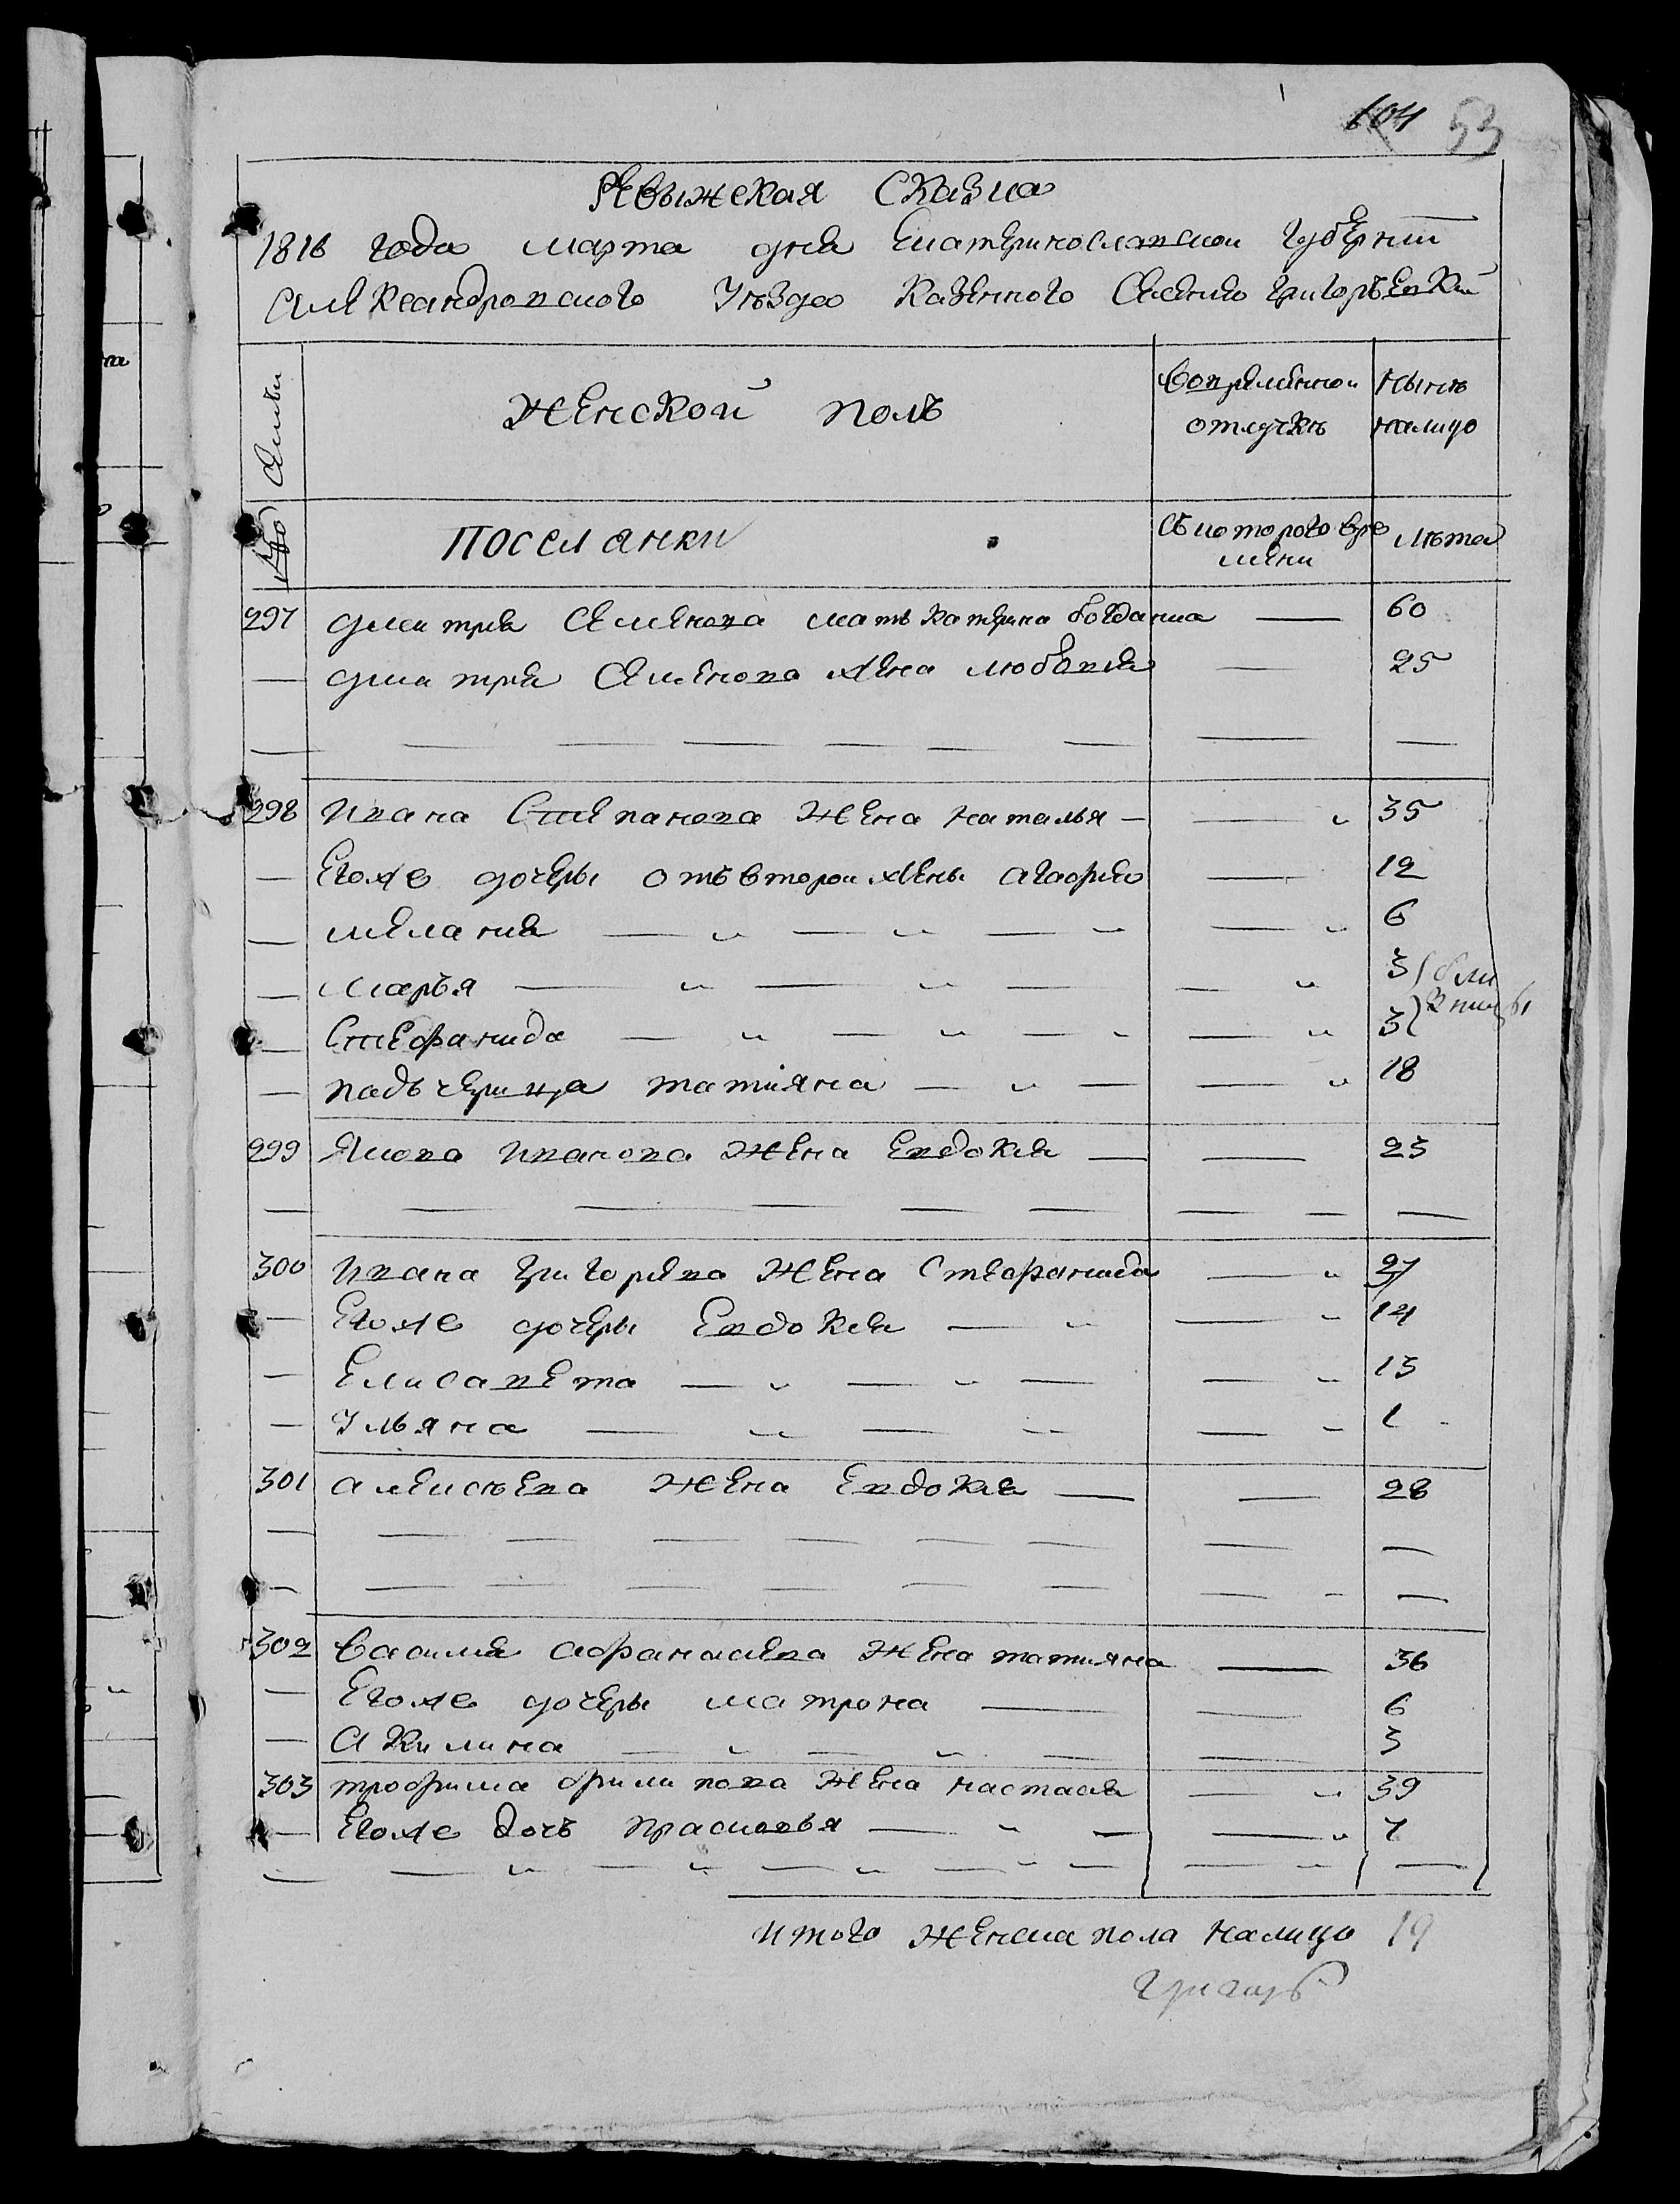 604 53
Ревижская Сказка
1816 года марта дня Екатеринославской Губернии
Александровского Уезда Казенного Селения Григорьевки
№ Семьи
Женской полъ
Вовременной отлучкѣ
Нынѣ налицо
Поселянки
Съ которого времени
Лѣта
297 дмитрия Семенова мать Катерина богданна — 60
— дмитрия Семенова жена любовия — 25
298 Ивана Степанова Жена наталья — 35
— Егоже дочеры отъ второй жены агафия — 12
— мелания — 6
— Марья — 3
— Стефанида — 3
— падъчерица татияна — 18
299 Якова Иванова Жена Евдокия — 23
300 Ивана Григориева Жена Стефанида — 27
— Егоже дочеры Евдокия — 14
— Елисавета — 13
— Ульяна — 1
301 алексѣева Жена Евдокия — 28
302 Василия афанасиева Жена татияна — 36
— Егоже дочеры матрона — 6
— Акилина — 3
303 трофима филипова Жена настасия — 39
— Егоже дочь прасковья — 7
итого Женска пола налицо 19